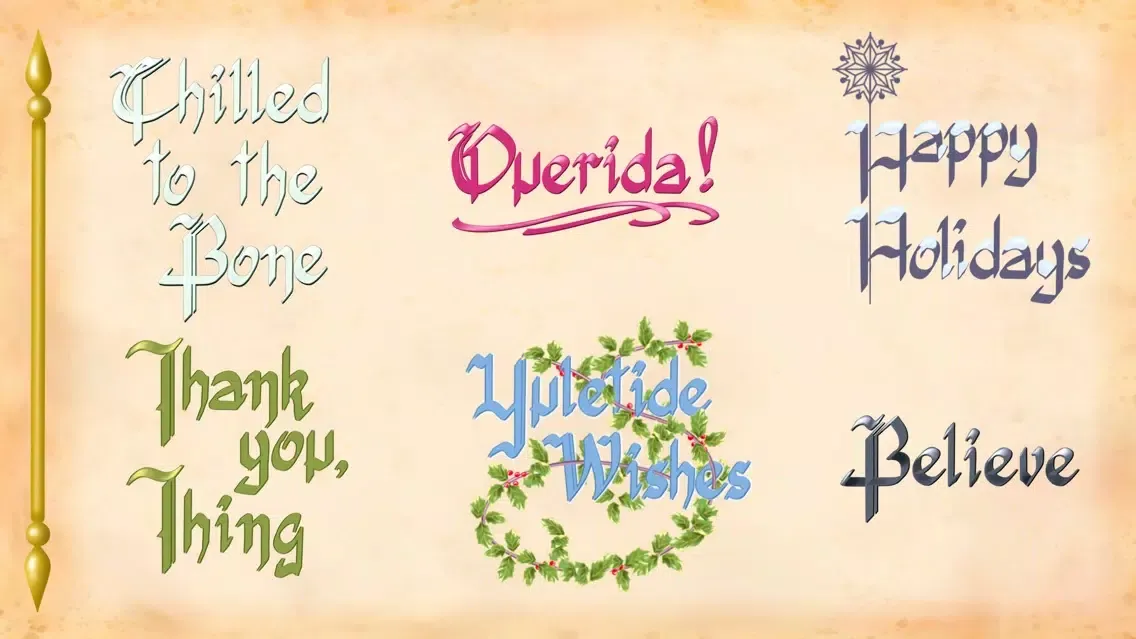 Chilled
to the
Bone
Querida!
Happy
Holidays
Thank
you,
Thing
Yuletide
Wishes
Believe